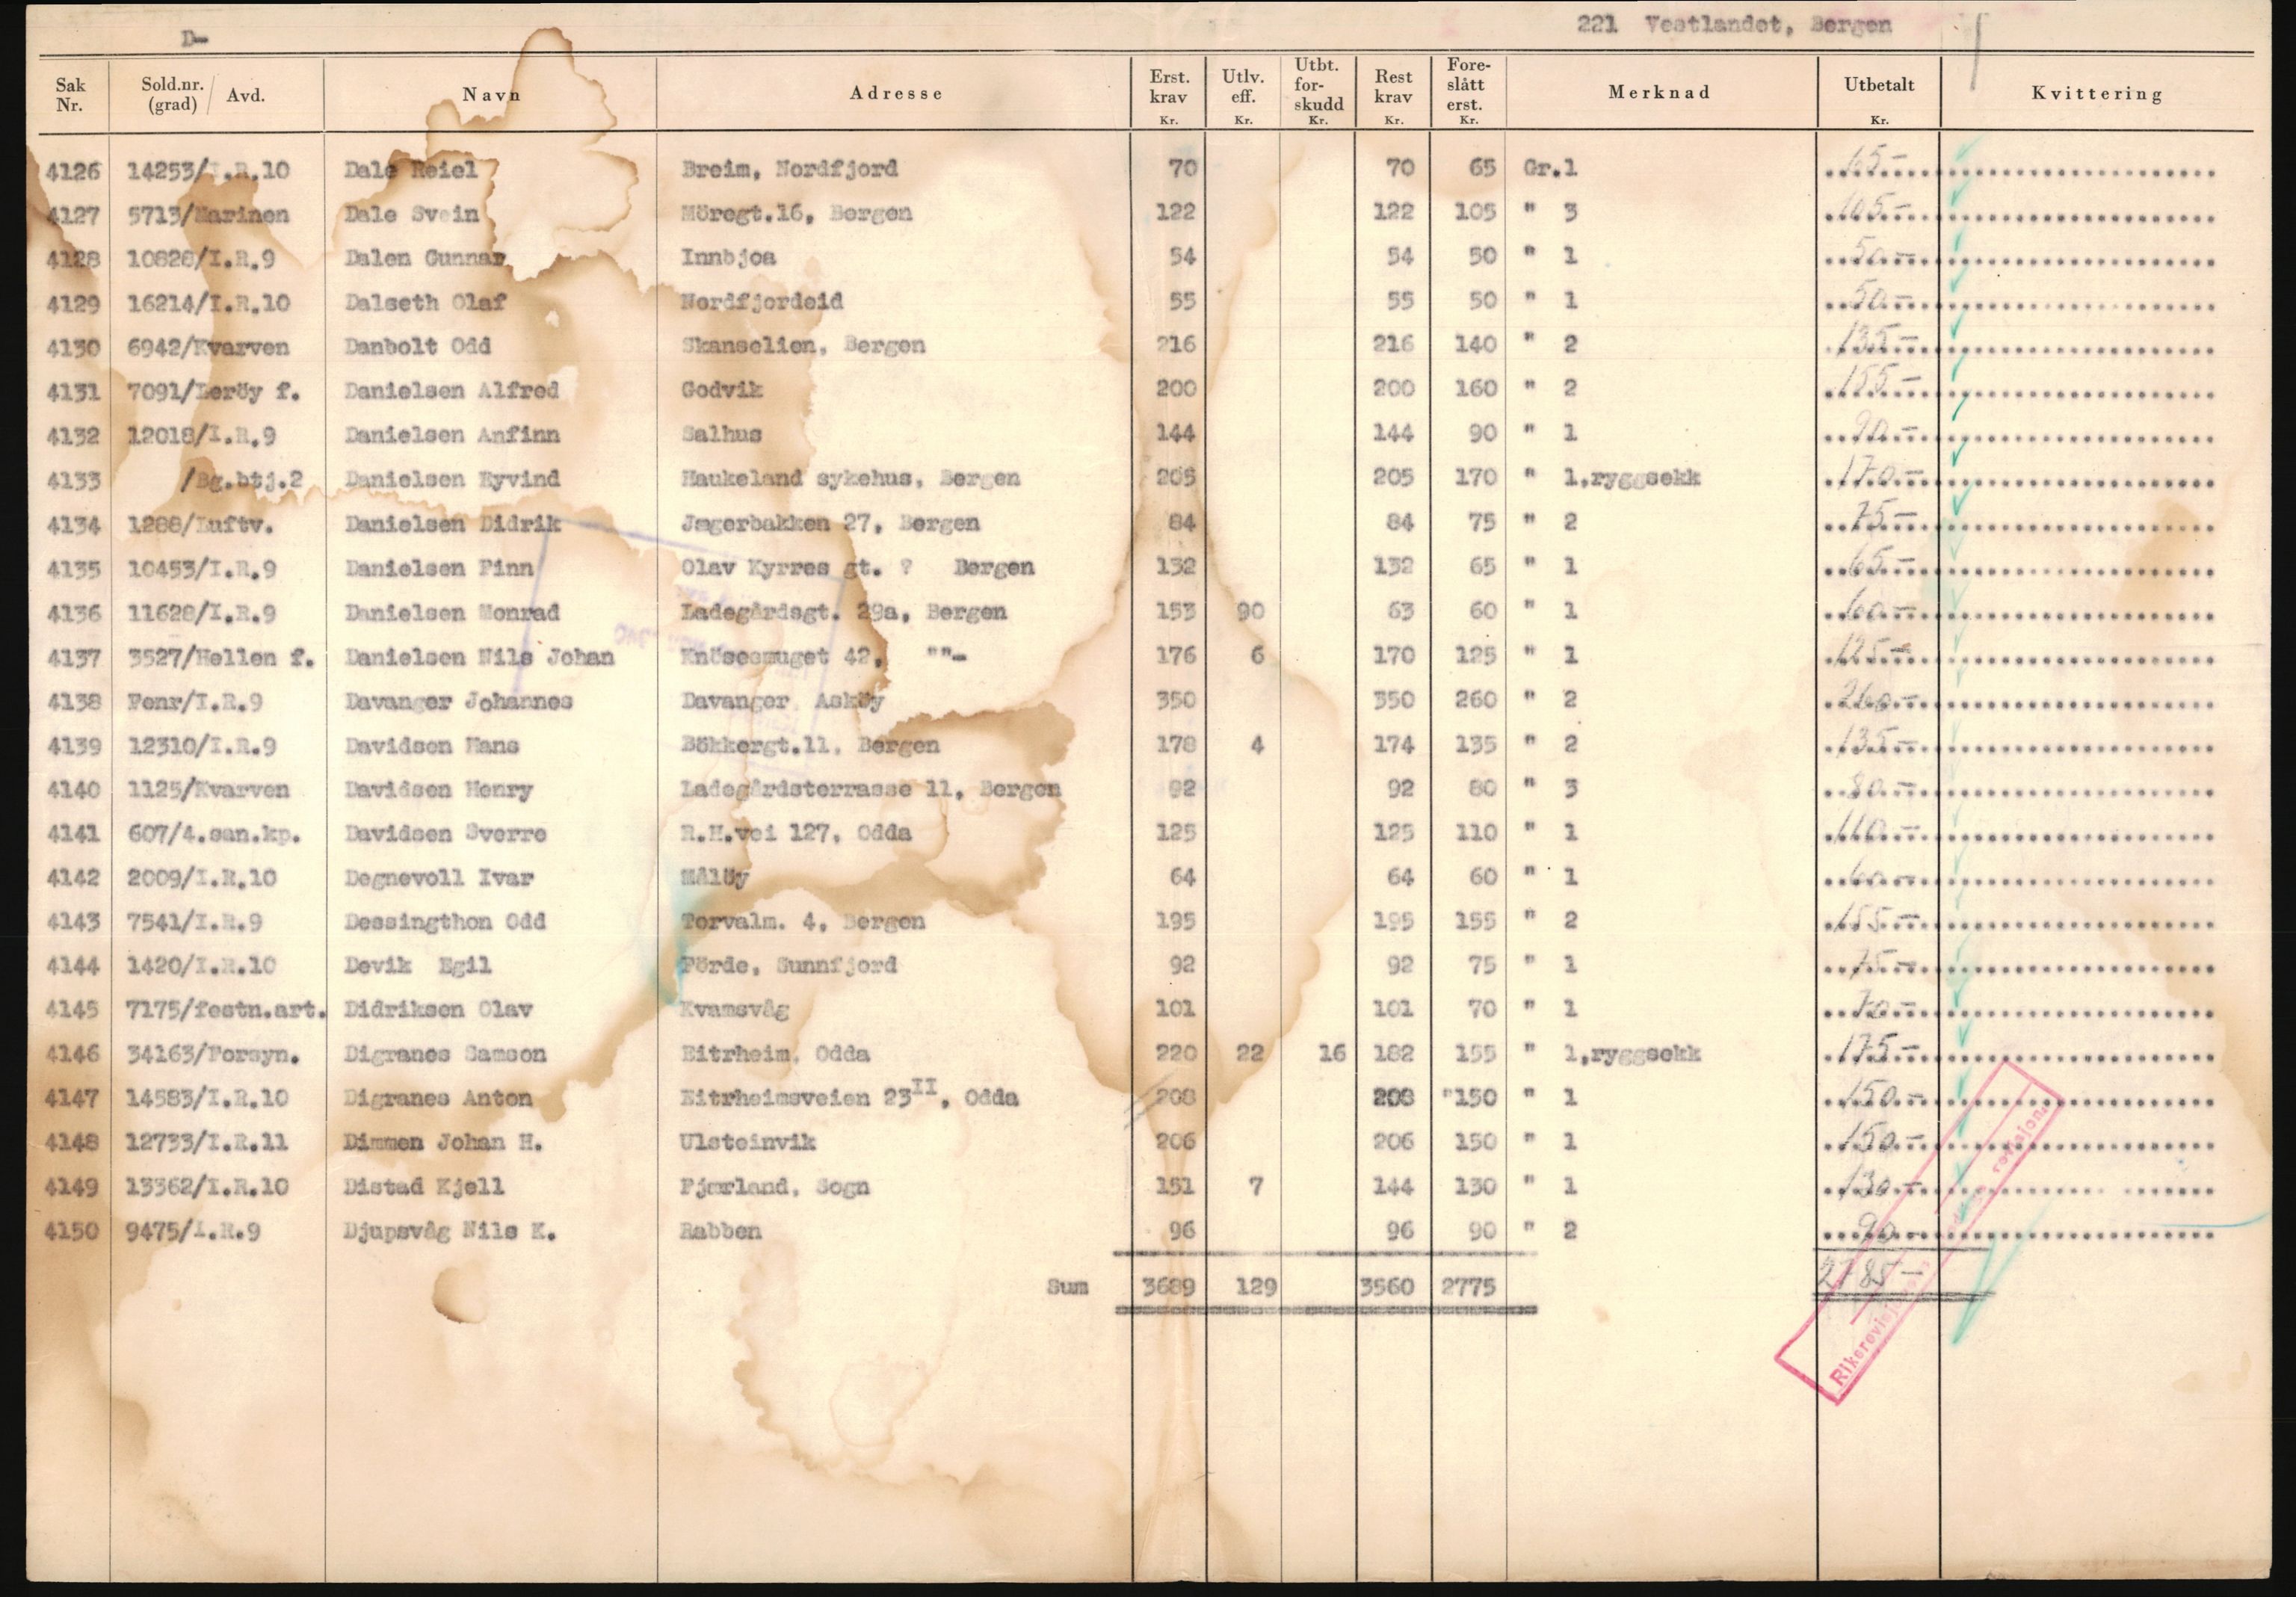 D-
221 Vestlandet, Bergen
Sak Nr. Sold.nr. (grad) / Avd. Navn Adresse Erst. krav Kr. Utlv. eff. Kr. Utbt. for- skudd Kr. Rest krav Kr. Fore- slått erst. Kr. Merknad Utbetalt Kr. Kvittering
4126 14253/I.R.10 Dale Reiel Breim, Nordfjord 70 70 65 Gr.1 65-
4127 5713/Marinen Dale Svein Möregt.16, Bergen 122 122 105 " 3 105-
4128 10828/I.R.9 Dalen Gunnar Innbjoa 54 54 50 " 1 50-
4129 16214/I.R.10 Dalseth Olaf Nordfjordeid 55 55 50 " 1 50-
4130 6942/Kvarven Danbolt Odd Skanselien, Bergen 216 216 140 " 2 135-
4131 7091/Leröy f. Danielsen Alfred Godvik 200 200 160 " 2 155-
4132 12018/I.R.9 Danielsen Anfinn Salhus 144 144 90 " 1 90-
4133 /Bg.btj.2 Danielsen Eyvind Haukeland sykehus, Bergen 205 205 170 " 1,ryggsekk 170-
4134 1288/Luftv. Danielsen Didrik Jægerbakken 27, Bergen 84 84 75 " 2 75-
4135 10453/I.R.9 Danielsen Finn Olav Kyrres gt. ? Bergen 132 132 65 " 1 65-
4136 11628/I.R.9 Danielsen Monrad Ladegårdsgt. 29a, Bergen 153 90 63 60 " 1 60-
4137 3527/Hellen f. Danielsen Nils Johan Knösesmuget 42, ""- 176 6 170 125 " 1 125-
4138 Fenr/I.R.9 Davanger Johannes Davanger, Asköy 350 350 260 " 2 260-
4139 12310/I.R.9 Davidsen Hans Bökkergt.11, Bergen 178 4 174 135 " 2 135-
4140 1125/Kvarven Davidsen Henry Ladegårdsterrasse 11, Bergen 92 92 80 " 3 80-
4141 607/4.san.kp. Davidsen Sverre R.H.vei 127, Odda 125 125 110 " 1 110-
4142 2009/I.R.10 Degnevoll Ivar Målöy 64 64 60 " 1 60-
4143 7541/I.R.9 Dessingthon Odd Torvalm. 4, Bergen 195 195 155 " 2 155-
4144 1420/I.R.10 Devik Egil Förde, Sunnfjord 92 92 75 " 1 75-
4145 7175/festn.art. Didriksen Olav Kvamsvåg 101 101 70 " 1 70-
4146 34163/Forsyn. Digranes Samson Eitrheim, Odda 220 22 16 182 155 " 1,ryggsekk 175-
4147 14583/I.R.10 Digranes Anton Eitrheimsveien 23II, Odda 208 208 "150 " 1 150-
4148 12733/I.R.11 Dimmen Johan H. Ulsteinvik 206 206 150 " 1 150-
4149 13362/I.R.10 Distad Kjell Fjærland, Sogn 151 7 144 130 " 1 130-
4150 9475/I.R.9 Djupsvåg Nils K. Rabben 96 96 90 " 2 90-
Sum 3689 129 3560 2775 2785-
revisjon.